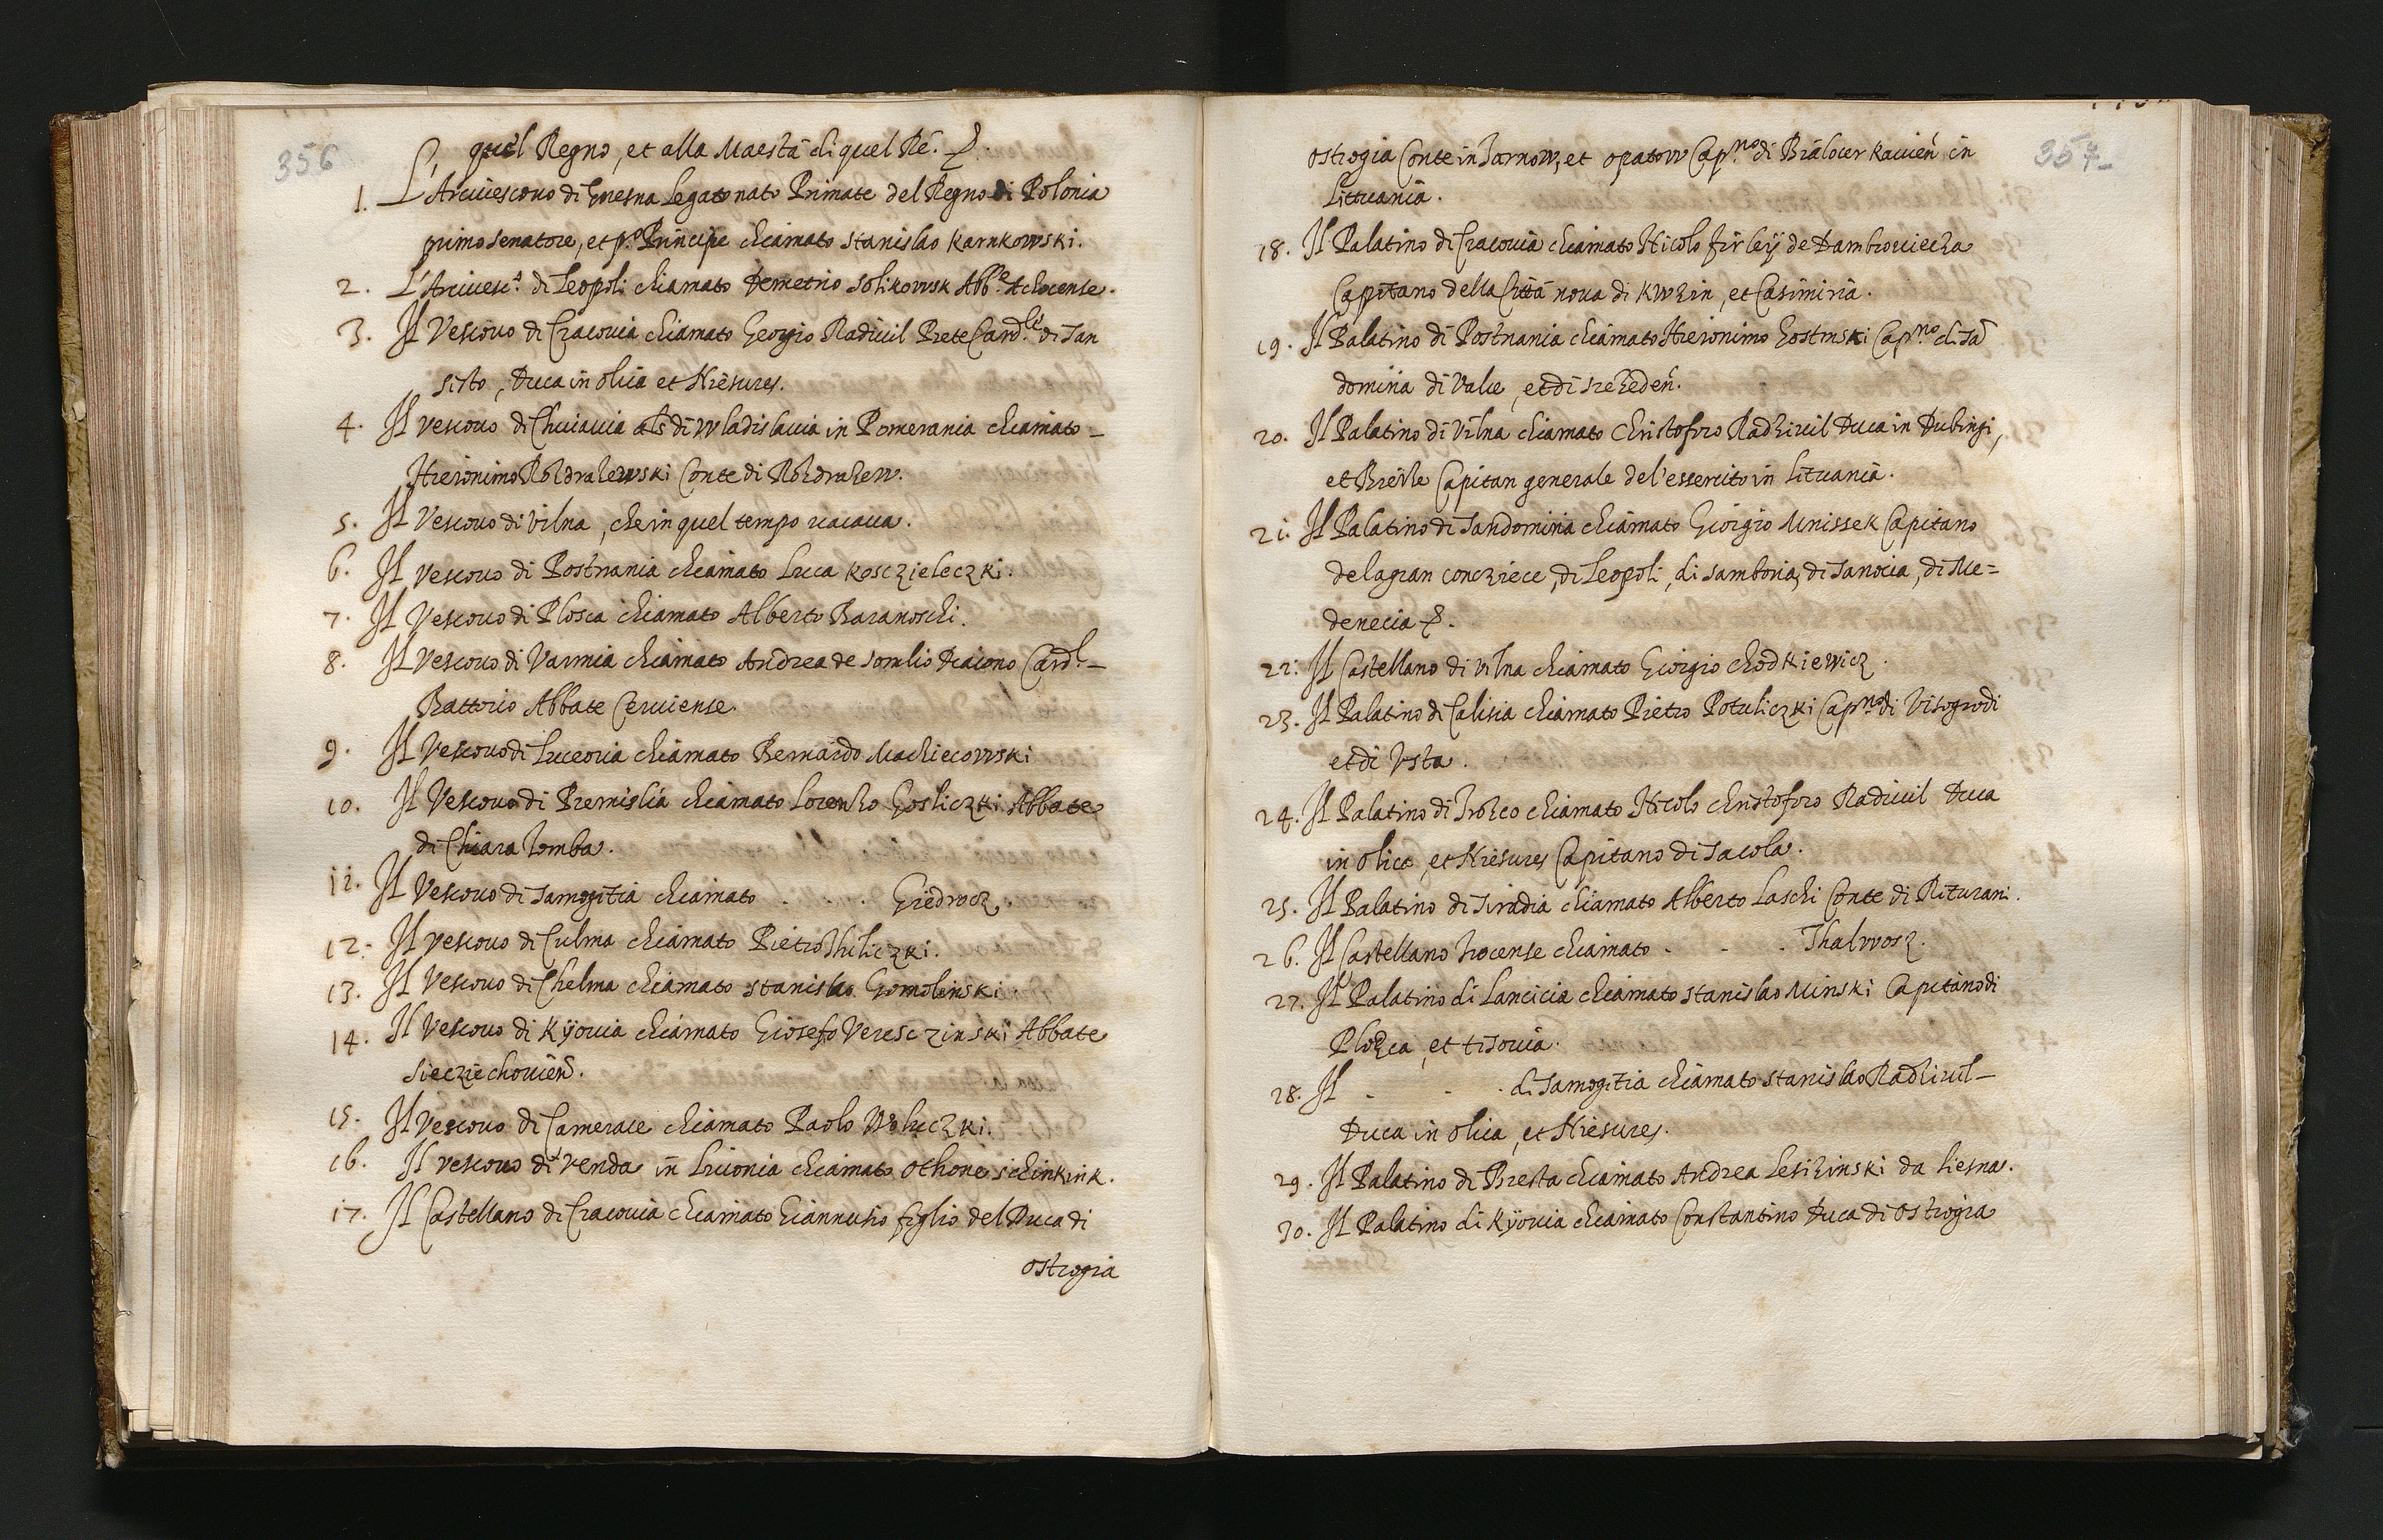 356
quel Regno, et alla Maestà di quel Rè. &.
1. L'Arciuescouo di Gnesna Legato nato Primate del Regno di Polonia
primo senatore, et p.º Principe chiamato stanislao Karnkowski.
2. L'Arciuesc.º di Leopoli chiamato Demetrio Solikowsk Abb.e
3. Il Vescouo di Cracouia chiamato Georgio Radiuil Prete Card.le di San
Sisto, Duca in Olica et Niesures.
4. Il vescouo di Chuiauia als di Wladislauia in Pomerania chiamato
Hieronimo Rozdrazewski Conte di Rozdrazew.
5. Il Vescouo di Vilna, che in quel tempo uacaua.
6. Il vescouo di Postnania chiamato Luca Kosczieleczki.
7. Il Vescouo di Plosca chiamato Alberto Baranoschi.
8. Il Vescouo di Varmia chiamato Andrea de Somlio Diacono Card.l
Battorio Abbate Ceruiense.
9. Il Vescouo di Luceoria chiamato Bernardo Machiecowski
10. Il Vescouo di Premislia chiamato Lorenzo Gosliczki Abbate
di Chiara Tomba.
11. Il Vescouo di Samogitia chiamato . . . Giedrocz.
12. Il vescouo di Culma chiamato Pietro
13. Il Vescouo di Chelma chiamato stanislao Gomolinski.
14. Il Vescouo di Kÿouia chiamato Giosefo Veresczinski Abbate
Siecziechouien̄.
15. Il Vescouo di Camerace chiamato Paolo Woluczki.
16. Il vescouo di Venda in Liuonia chiamato Othone schinkink.
17. Il Castellano di Cracouia chiamato Giannusio figlio del Duca di
ostrogia
357
ostrogia Conte in Tarnow, et opatow Cap.no di Bialocerkauien̄ in
Lituania.
18. Il Palatino di Cracouia chiamato Nicolo firleÿ de Dambrouiecza
Capitano della Città noua di Kwzin, et Casimiria.
19. Il Palatino di Postnania chiamato Hieronimo Gostmski Cap.no di Sā
domiria di Valce, et di srezeden̄.
20. Il Palatino di Vilna chiamato Christoforo Radziuil Duca in Dubingi,
et Bierze Capitan generale del'essercito in Lituania.
21. Il Palatino di Sandomiria chiamato Giorgio Mnissek Capitano
dela gran conczriece, di Leopoli, di samboria, di Sanocia, di Me=
denecia &.
22. Il Castellano di Vilna chiamato Giorgio chodkiewicz.
23. Il Palatino di Calisia chiamato Pietro Potuliczki Cap.no di Visogrodi
et di Vsta.
24. Il Palatino di Trozco chiamato Nicolo christoforo Radiuil Duca
in olice, et Niesures Capitano di Sacola.
25. Il Palatino di Siradia chiamato Alberto Laschi Conte di Riturani.
26. Il Castellano Trocense chiamato . . . Thalwosz.
27. Il Palatino di Lancicia chiamato stanislao Minski Capitano di
Plozca, et tisouia.
28. Il . . . di Samogitia chiamato stanislao Radziuil
Duca in olica, et Niesures.
29. Il Palatino di Bresta chiamato Andrea Leszinski da liesna.
30. Il Palatino di Kÿouia chiamato Constantino Duca di ostrogia